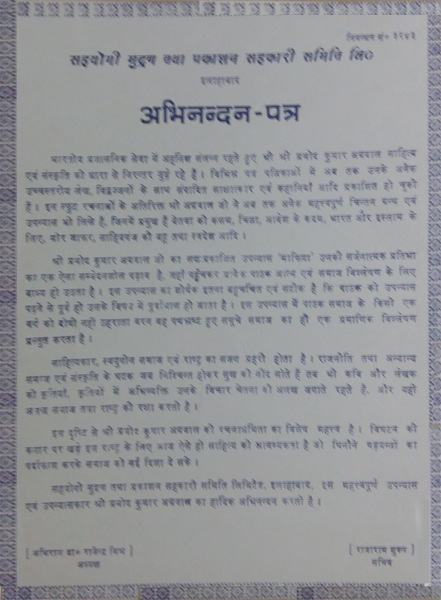 निबन्धन सं० ३२४३
सहयोगी मुद्रण तथा प्रकाशन सहकारी समिति लि०
इलाहाबाद
अभिनन्दन-पत्र
भारतीय प्रशासनिक सेवा में अहर्निश संलग्न रहते हुए भी श्री प्रमोद कुमार अग्रवाल साहित्य
एवं संस्कृति की धारा से निरन्तर जुड़े रहे हैं। विभिन्न पत्र पत्रिकाओं में अब तक उनके अनेक
उच्चस्तरीय लेख, विद्वज्जनों के साथ संपादित साक्षात्कार एवं कहानियाँ आदि प्रकाशित हो चुकी
हैं। इन स्फुट रचनाओं के अतिरिक्त श्री अग्रवाल जी ने अब तक अनेक महत्त्वपूर्ण चिंतन ग्रन्थ एवं
उपन्यास भी लिखे हैं, जिनमें प्रमुख हैं बेतवा की कसम, चिता, आदेश के कदम, भारत और इस्लाम के
लिए, और काफर, साहिबगंज की बहू तथा स्वदेश आदि।
श्री प्रमोद कुमार अग्रवाल जी का सद्यःप्रकाशित उपन्यास उनकी सर्जनात्मक प्रतिभा
का एक ऐसा सम्वेदनशील पड़ाव है, जहाँ पहुँचकर प्रत्येक पाठक आत्म एवं समाज विश्लेषण के लिए
बाध्य हो उठता है। इस उपन्यास का शीर्षक इतना बहुचर्चित एवं सटीक है कि पाठक को उपन्यास
पढ़ने से पूर्व ही उसके विषय में पूर्वाभास हो जाता है। इस उपन्यास में पाठक समाज के किसी एक
वर्ग को दोषी नहीं ठहराता वरन वह पथभ्रष्ट हुए समूचे समाज का ही एक प्रमाणिक विश्लेषण
प्रस्तुत करता है।
साहित्यकार, स्वयुगीन समाज एवं राष्ट्र का सजग प्रहरी होता है। राजनीति तथा अन्यान्य
समाज एवं संस्कृति के घटक जब निश्चिन्त होकर सुख की नींद सोते हैं तब भी कवि और लेखक
की कृतियाँ, कृतियों में अभिव्यक्ति उनके विचार चेतना की अलख जगाते रहते हैं, और यही
अलख समाज तथा राष्ट्र की रक्षा करती है।
इस दृष्टि से श्री प्रमोद कुमार अग्रवाल की रचनाधर्मिता का विशेष महत्त्व है। विघटन की
कगार पर खड़े इस राष्ट्र के लिए आज ऐसे ही साहित्य की आवश्यकता है जो घिनौने षड्यन्त्रों का
पर्दाफाश करके समाज को नई दिशा दे सके।
सहयोगी मुद्रण तथा प्रकाशन सहकारी समिति लिमिटेड, इलाहाबाद, इस महत्त्वपूर्ण उपन्यास
एवं उपन्यासकार श्री प्रमोद कुमार अग्रवाल का हार्दिक अभिनन्दन करती है।
[ अभिराज डा० राजेन्द्र मिश्र ]
अध्यक्ष
[ राजाराम शुक्ल ]
सचिव